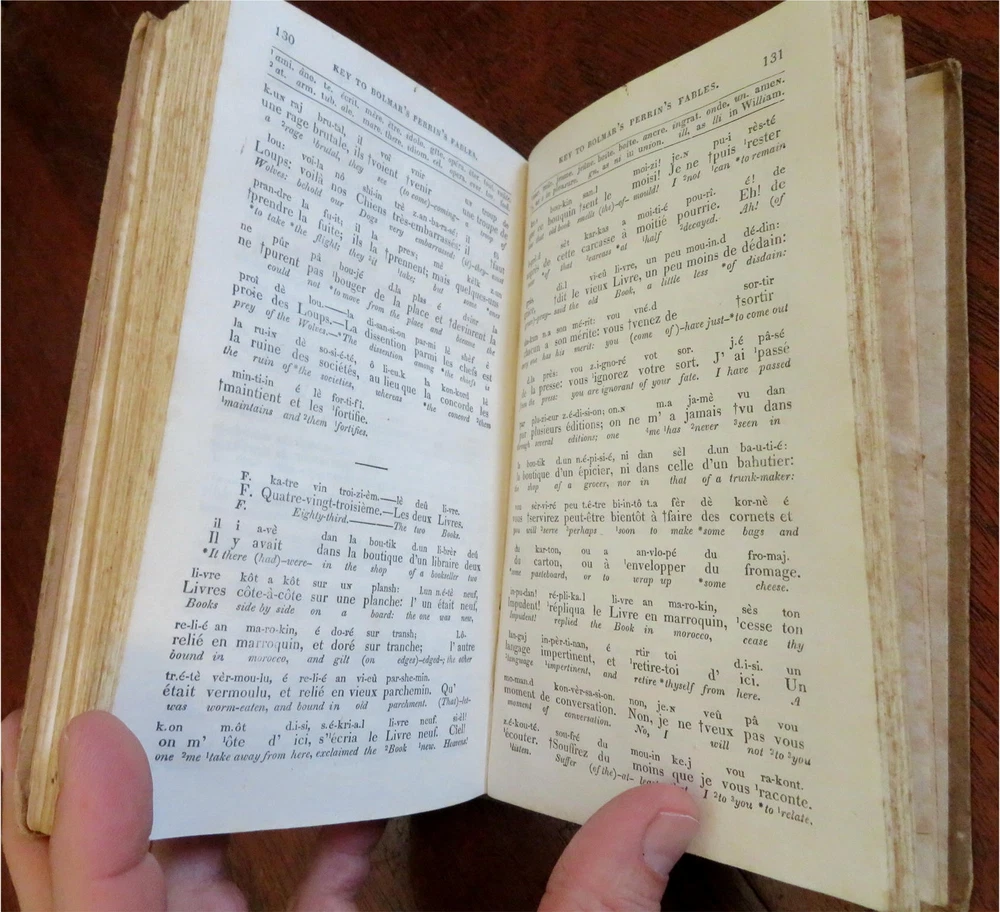 130
KEY TO BOLMAR'S PERRIN'S FABLES.
¹ami. âne. te. écrit. mère. être. idole. gîte. opéra. ôter. tout. voûte.
²at. arm. tub. ale. mare. there. idiom. eel. opera. over. too. fool.
k.ux raj bru-tal, il voi vnir ux troup de
une rage brutale, ils †voient †venir une troupe de
a ²rage ¹brutal, they see (to come)-coming- a troop of
Lou: voi-la nô shi-in trè z.an-ba-ra-sé: il fô
Loups: voilà nos Chiens très-embarrassés: il †faut
Wolves: behold our Dogs very embarrassed: (it)-they- must
pran-dre la fu-it; il la pren; mè kèlk z.un
†prendre la fuite; ils la †prennent; mais quelques-uns
*to take *the flight; they ²it ¹take; but some
ne pûr pâ bou-jé d.la plas é dvinr la
ne †purent pas ¹bouger de la place et †devinrent la
could not *to move from the place and became the
proî dè lou.—la di-san-si-on par-mi lè shèf é
proie des Loups.—La dissention parmi les chefs est
prey of the Wolves.—*The dissention among *the chiefs is
la ru-in dè so-si-é-té, ô li-eu.k la kon-kord lè
la ruine des sociétés, au lieu que la concorde les
the ruin of *the societies, whereas *the concord ²them
min-ti-in é lè for-ti-fi.
†maintient et les ¹fortifie.
¹maintains and ²them ¹fortifies.
F. ka-tre vin troi-zi-èm.—lè deû li-vre.
F. Quatre-vingt-troisième.—Les deux Livres.
F. Eighty-third.—The two Books.
il i a-vè dan la bou-tik d.un li-brèr deû
Il y avait dans la boutique d'un libraire deux
*It there (had)-were- in the shop of a bookseller two
li-vre kôt a kôt sur ux plansh: l.un n.é-tè neuf,
Livres côte-à-côte sur une planche: l' un était neuf,
Books side by side on a board: the one was new,
re-li-é an ma-ro-kin, é do-ré sur transh; Lô-
relié en marroquin, et doré sur tranche; l' autre
bound in morocco, and gilt (on edges)-edged-; the other
tr.é-tè vèr-mou-lu, é re-li-é an vi-eû par-she-min.
était vermoulu, et relié en vieux parchemin. Qu'
was worm-eaten, and bound in old parchment. (That)-let-
k.on m.ôt d.i-si, s.é-kri-a.l li-vre neuf. si-èl!
on m' ¹ôte d' ici, s'¹écria le Livre neuf. Ciel!
one ²me ¹take away from here, exclaimed the ²Book ¹new. Heavens!
131
KEY TO BOLMAR'S PERRIN'S FABLES.
jeune. jeûne. boite. boîte. ancre. ingrat. onde. un. amen.
pleasure. gn, as ni in union. ill, as lli in William.
bou-kin san.l moi-zi! je.n pu-i rès-té
bouquin †sent le moisi! Je ne †puis ¹rester
that old book smells (the)-of- mould! I ²not ¹can *to remain
sèt kar-kas a moi-ti-é pou-ri. é! de
de cette carcasse à moitié pourrie. Eh! de
of that ²carcass *at ¹half ²decayed. Ah! (of
di.l vi-eû li-vre, un peu mou-in.d dé-din:
†dit le vieux Livre, un peu moins de dédain:
said the old Book, a little less *of disdain:
n.a son mé-rit: vou vné.d sor-tir
a son mérite: vous †venez de †sortir
one has his merit: you (come of)-have just-*to come out
d.la près: vou z.i-gno-ré vot sor. j.é pâ-sé
de la presse: vous ¹ignorez votre sort. J' ai ¹passé
from the press: you are ignorant of your fate. I have passed
par plu-zi-eur z.é-di-si-on; on.n m.a ja-mè vu dan
par plusieurs éditions; on ne m' a jamais †vu dans
through several editions; one ¹me ¹has ²never ³seen in
la bou-tik d.un n.é-pi-si-é, ni dan sèl d.un ba-u-ti-é:
la boutique d'un épicier, ni dans celle d'un bahutier:
the shop of a grocer, nor in that of a trunk-maker:
vou sèr-vi-ré peu t.é-tre bi-in-tô t.a fèr dè kor-nè é
vous †servirez peut-être bientôt à †faire des cornets et
you will ³serve ¹perhaps ²soon to make *some bags and
du kar-ton, ou a an-vlo-pé du fro-maj.
du carton, ou à ¹envelopper du fromage.
*some pasteboard, or to wrap up *some cheese.
in-pu-dan! ré-pli-ka.l li-vre an ma-ro-kin, sès ton
Impudent! ¹répliqua le Livre en marroquin, ¹cesse ton
Impudent! replied the Book in morocco, cease thy
lan-gaj in-pèr-ti-nan, é rtir toi d.i-si. un
langage impertinent, et ¹retire-toi d' ici. Un
²language ¹impertinent, and retire *thyself from here. A
mo-man.d kon-vèr-sa-si-on. non, je.n veû pâ vou
moment de conversation. Non, je ne †veux pas vous
moment of conversation. No, I will not ²to ³you
z.é-kou-té. sou-fré du mou-in ke.j vou ra-kont.
¹écouter. †Souffrez du moins que je vous ¹raconte.
¹listen. Suffer (of the)-at- I ²to ³you *to ¹relate.